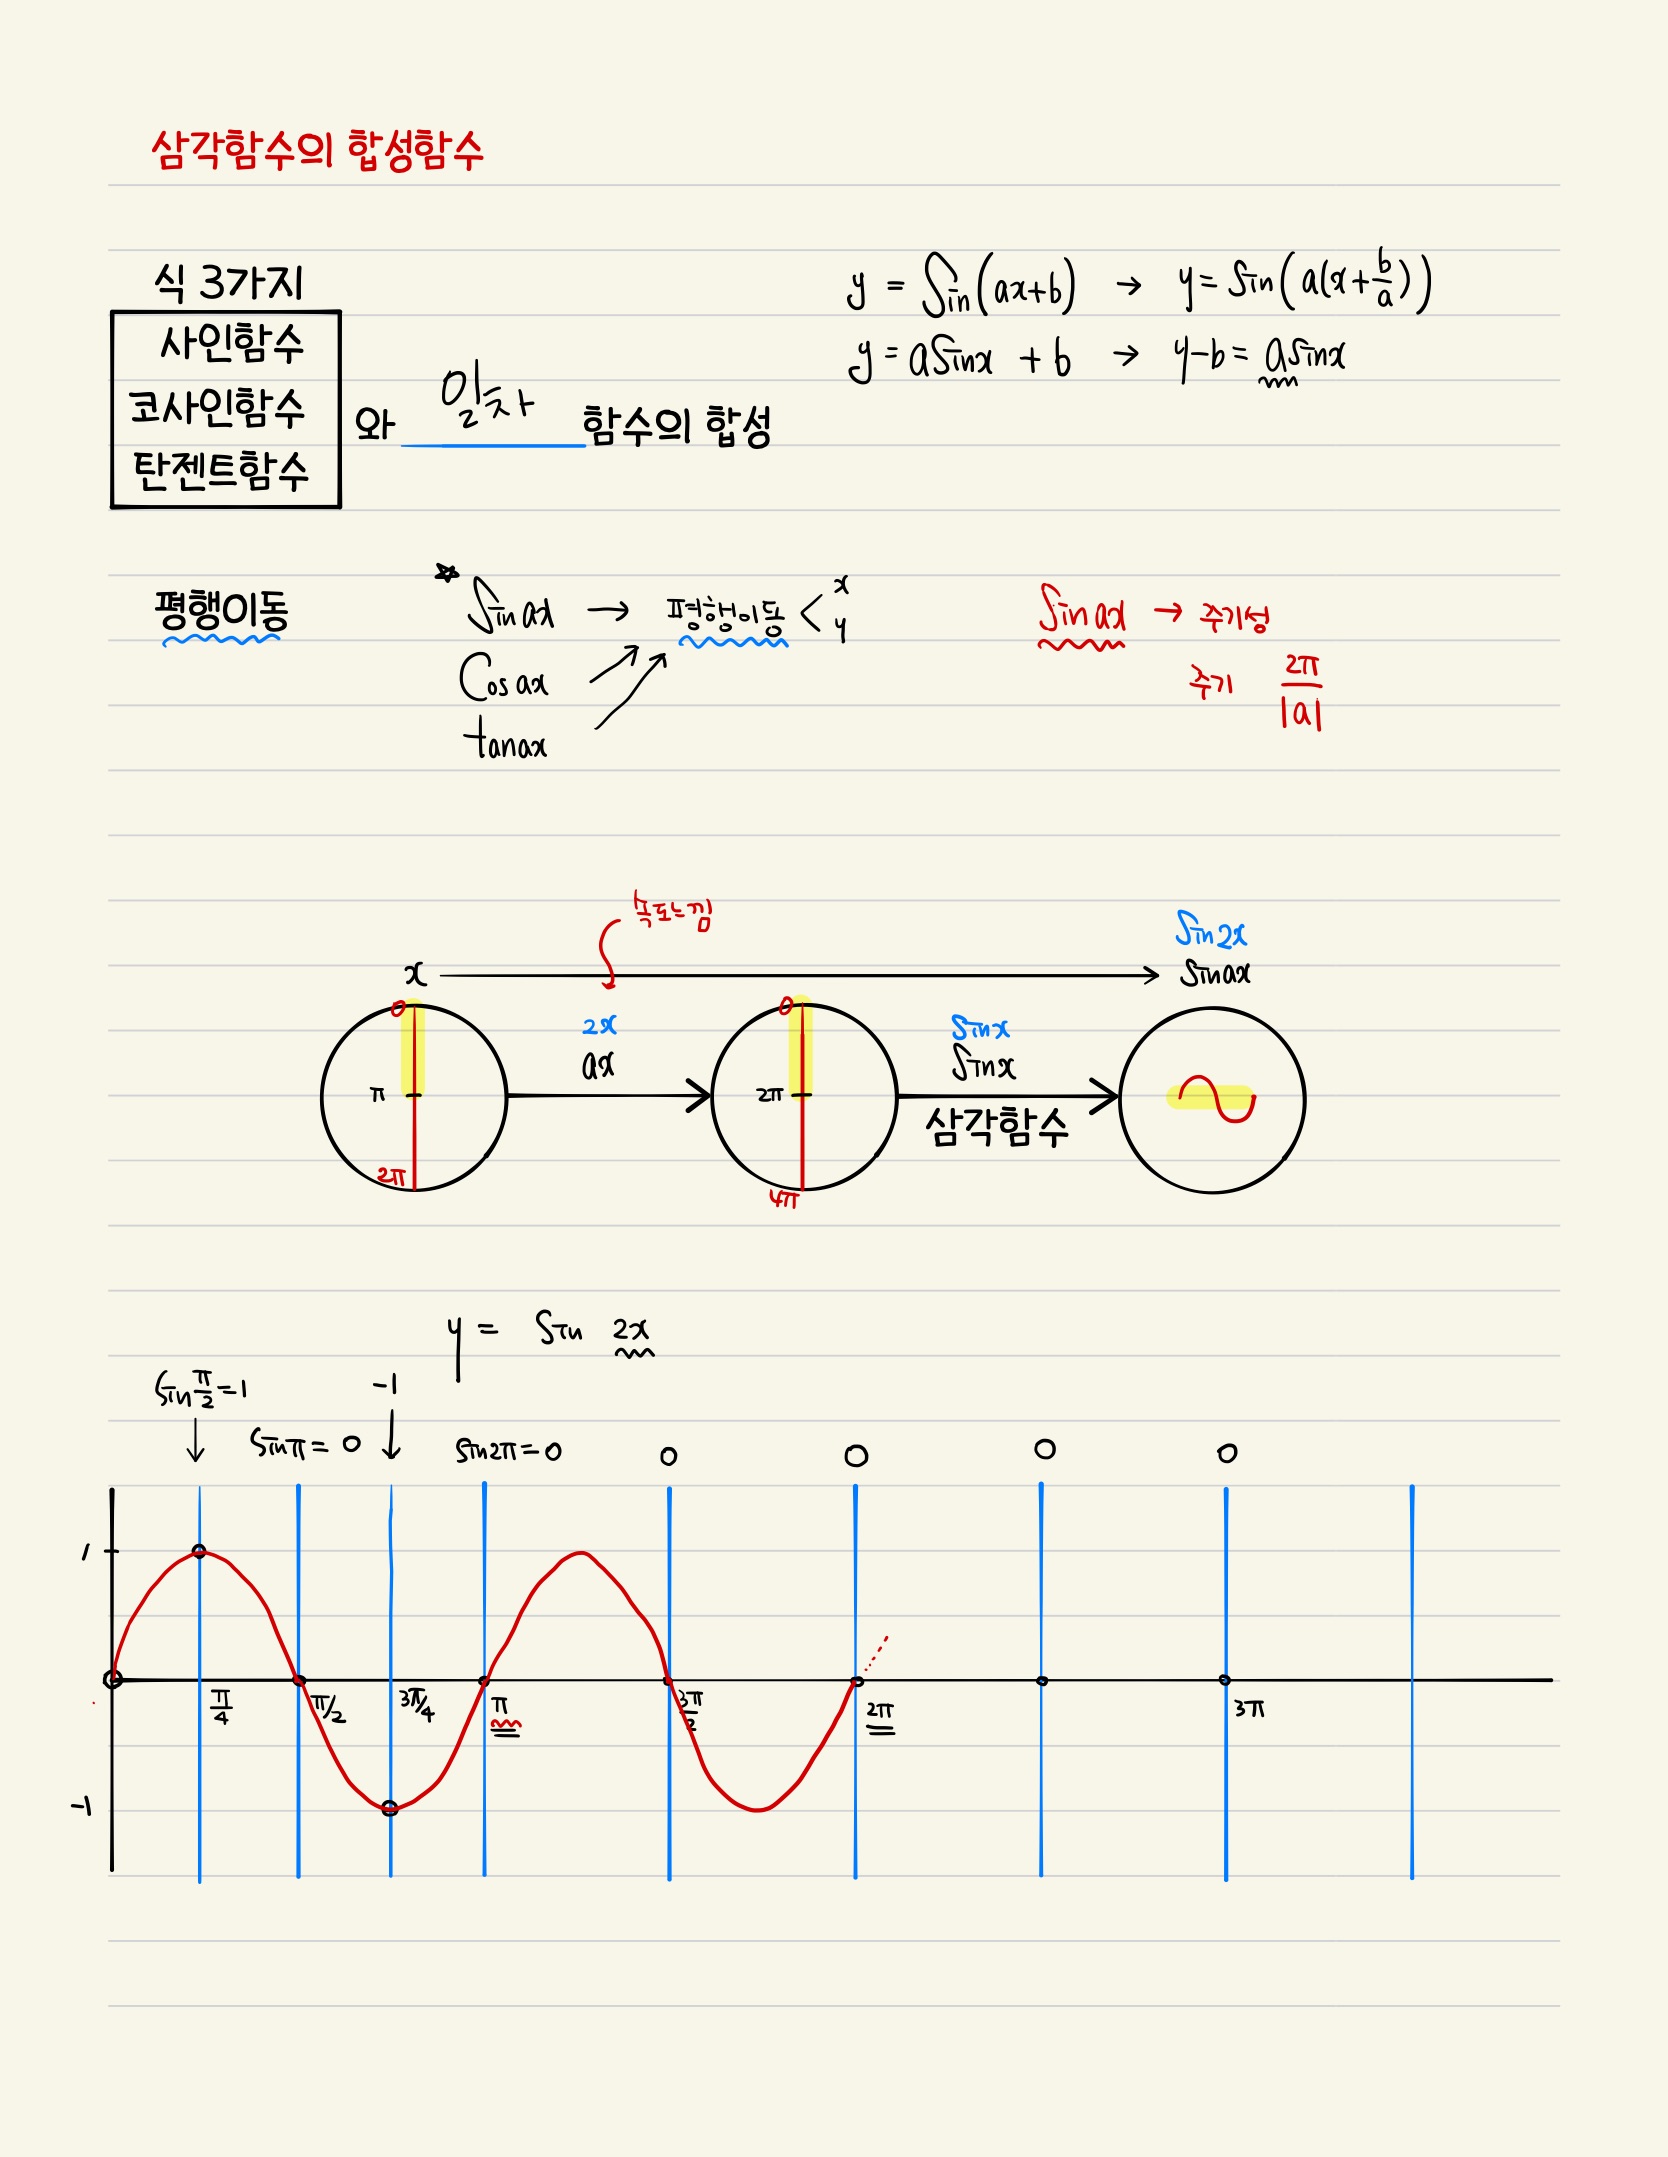 삼각함수의 합성함수
식 3가지
사인함수
코사인함수
탄젠트함수
와 일차 함수의 합성
y = Sin(ax+b) → y = Sin(a(x+b/a))
y = aSinx + b → y-b = aSinx
평행이동
☆ Sin ax → 평행이동 < x y
Cos ax
tanax
Sin ax → 주기성
주기 2π/|a|
속도느낌
x
Sin2x
Sinax
0
2x
ax
0
Sinx
Sinx
π
2π
삼각함수
2π
4π
y = Sin 2x
Sin π/2 = 1
-1
Sinπ = 0
Sin2π = 0
0
0
0
0
1
π/4
π/2
3π/4
π
3π/2
2π
3π
-1